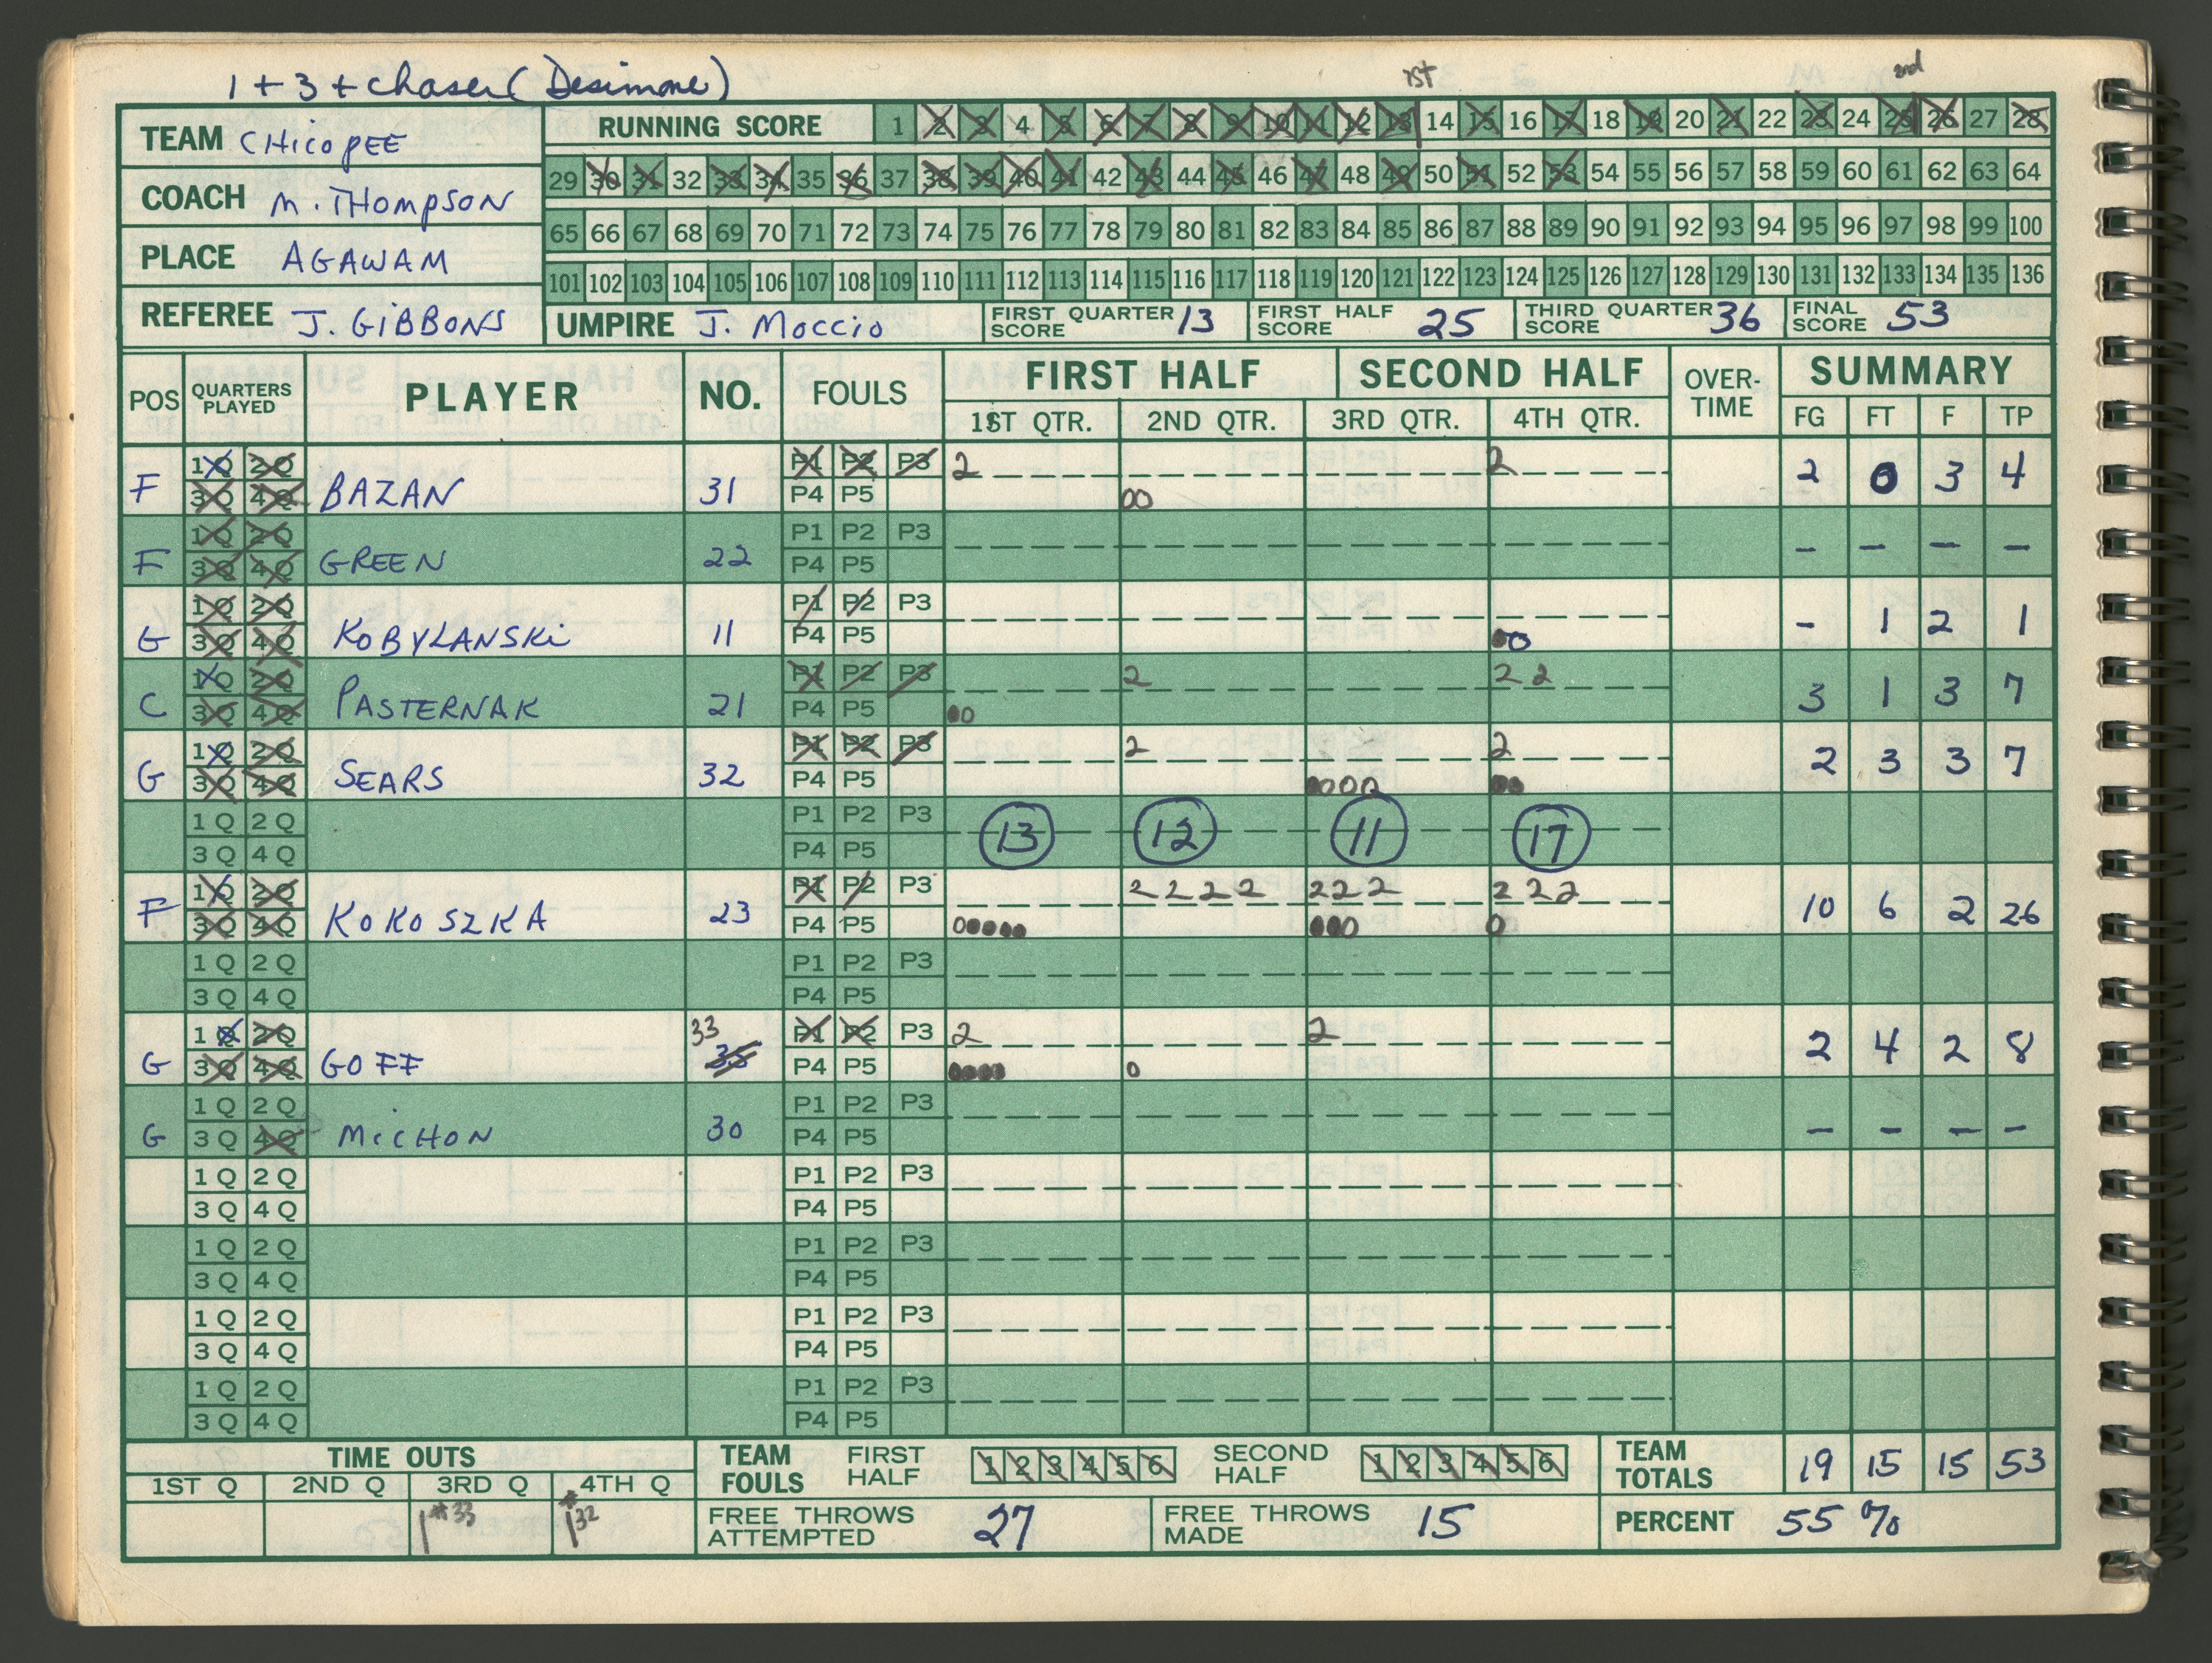 1 + 3 + chaser (Desimone)
1st 2nd
TEAM CHicopEE
RUNNING SCORE 1 2 3 4 5 6 7 8 9 10 11 12 13 14 15 16 17 18 19 20 21 22 23 24 25 26 27 28
29 30 31 32 33 34 35 36 37 38 39 40 41 42 43 44 45 46 47 48 49 50 51 52 53 54 55 56 57 58 59 60 61 62 63 64
COACH M. THOMPSON
65 66 67 68 69 70 71 72 73 74 75 76 77 78 79 80 81 82 83 84 85 86 87 88 89 90 91 92 93 94 95 96 97 98 99 100
PLACE AGAWAM
101 102 103 104 105 106 107 108 109 110 111 112 113 114 115 116 117 118 119 120 121 122 123 124 125 126 127 128 129 130 131 132 133 134 135 136
REFEREE J. GiBBONS
UMPIRE J. Moccio
FIRST QUARTER SCORE 13
FIRST HALF SCORE 25
THIRD QUARTER SCORE 36
FINAL SCORE 53
POS QUARTERS PLAYED PLAYER NO. FOULS FIRST HALF SECOND HALF OVER-TIME SUMMARY
1ST QTR. 2ND QTR. 3RD QTR. 4TH QTR. FG FT F TP
1Q 2Q P1 P2 P3 2 2
F 3Q 4Q BAZAN 31 P4 P5 00 2 0 3 4
1Q 2Q P1 P2 P3
F 3Q 4Q GREEN 22 P4 P5 - - - -
1Q 2Q P1 P2 P3
G 3Q 4Q KOBYLANSKi 11 P4 P5 00 - 1 2 1
1Q 2Q P1 P2 P3 2 2 2
C 3Q 4Q PASTERNAK 21 P4 P5 00 3 1 3 7
1Q 2Q P1 P2 P3 2 2
G 3Q 4Q SEARS 32 P4 P5 0000 00 2 3 3 7
1Q 2Q P1 P2 P3
3Q 4Q P4 P5 13 12 11 17
1Q 2Q P1 P2 P3 2 2 2 2 2 2 2 2 2 2
F 3Q 4Q KOKOSZKA 23 P4 P5 00000 000 0 10 6 2 26
1Q 2Q P1 P2 P3
3Q 4Q P4 P5
1Q 2Q 33 P1 P2 P3 2 2
G 3Q 4Q GOFF 35 P4 P5 0000 0 2 4 2 8
1Q 2Q P1 P2 P3
G 3Q 4Q MicHON 30 P4 P5 - - - -
1Q 2Q P1 P2 P3
3Q 4Q P4 P5
1Q 2Q P1 P2 P3
3Q 4Q P4 P5
1Q 2Q P1 P2 P3
3Q 4Q P4 P5
1Q 2Q P1 P2 P3
3Q 4Q P4 P5
TIME OUTS
1ST Q 2ND Q 3RD Q 4TH Q
1 #33 1 #32
TEAM FOULS FIRST HALF 1 2 3 4 5 6 SECOND HALF 1 2 3 4 5 6
TEAM TOTALS 19 15 15 53
FREE THROWS ATTEMPTED 27
FREE THROWS MADE 15
PERCENT 55 %